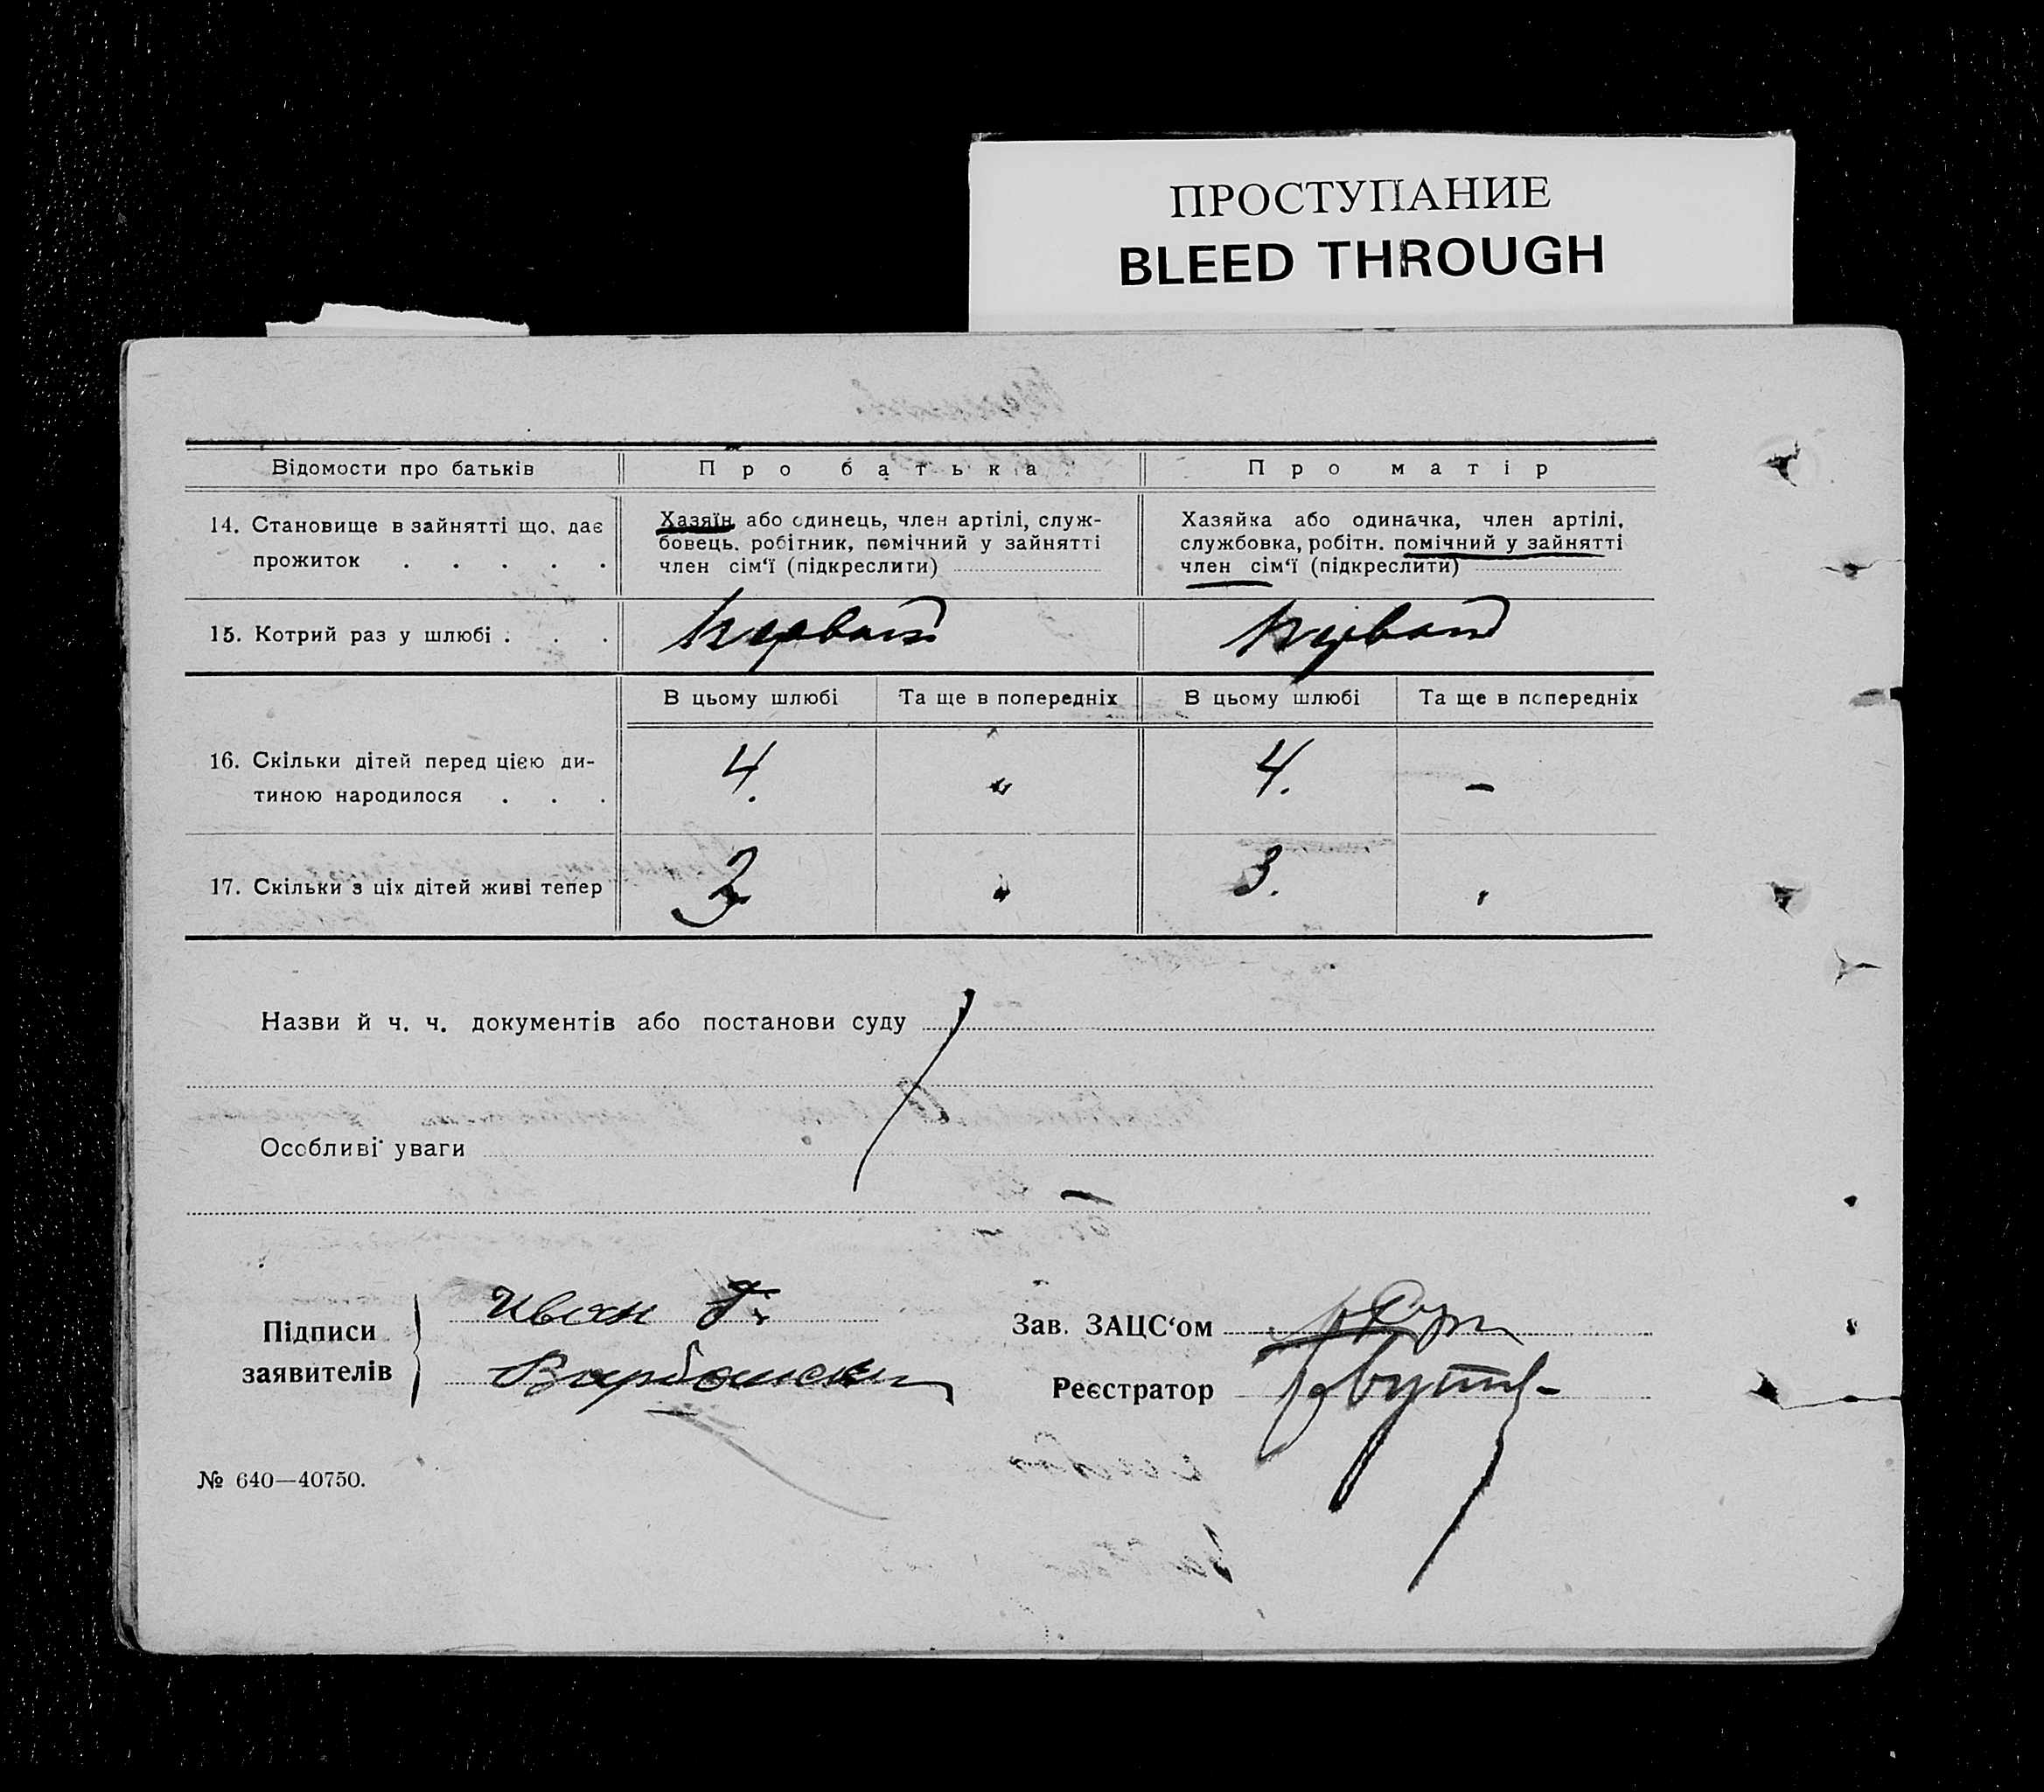 ПРОСТУПАНИЕ
BLEED THROUGH
Відомости про батьків
Про батька
Про матір
14. Становище в зайнятті що, дає
прожиток . . . . .
Хазяїн або одинець, член артілі, служ-
бовець, робітник, помічний у зайнятті
член сім'ї (підкреслити)
Хазяйка або одиначка, член артілі,
службовка, робітн. помічний у зайнятті
член сім'ї (підкреслити)
15. Котрий раз у шлюбі . . .
первий
первий
В цьому шлюбі
Та ще в попередніх
В цьому шлюбі
Та ще в попередніх
16. Скільки дітей перед цією ди-
тиною народилося . . .
4.
"
4.
–
17. Скільки з ціх дітей живі тепер
3
"
3.
Назви й ч. ч. документів або постанови суду
Особливі уваги
Підписи
заявителів
Иван Г.
Зав. ЗАЦС'ом
Реєстратор
№ 640—40750.